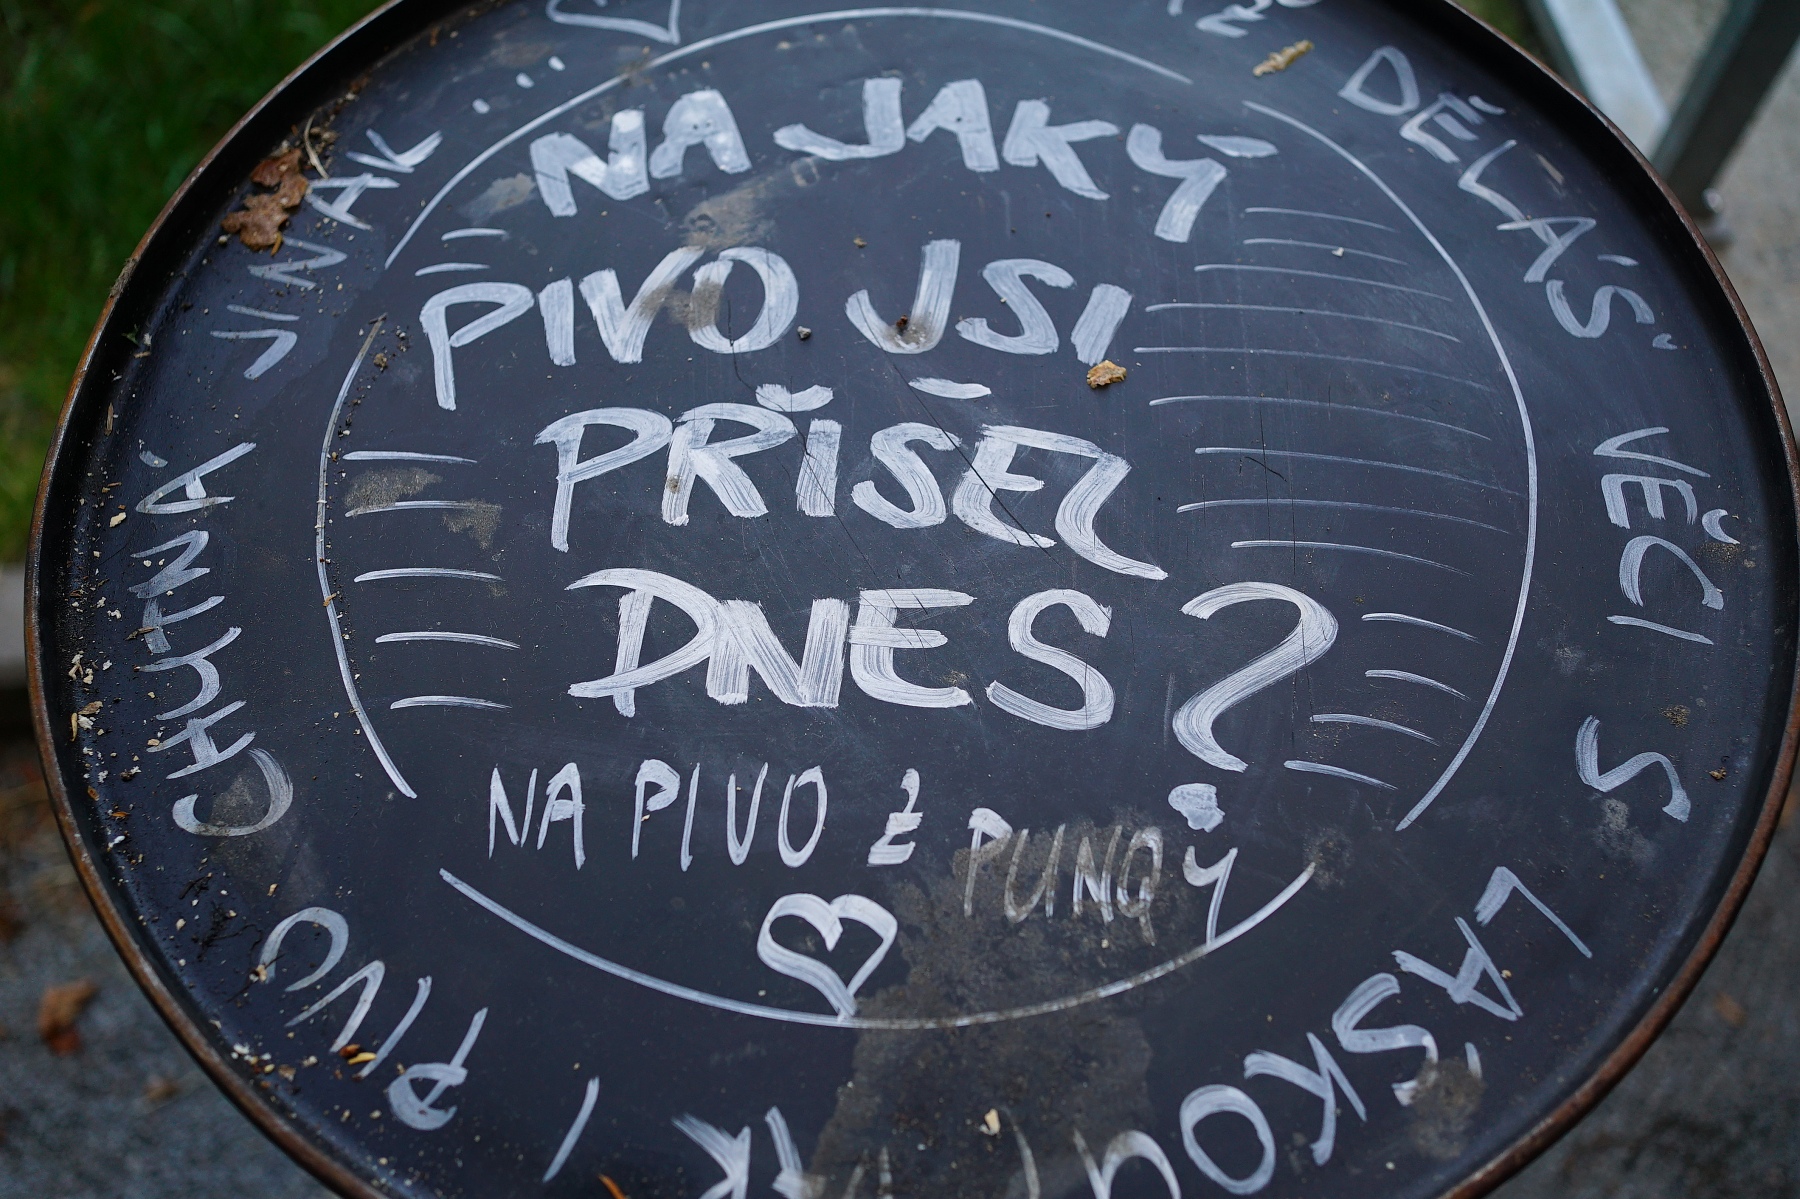 NA JAKÝ
PIVO JSI
PŘIŠEL
DNES?
NA PIVO Z PUNQY
DĚLÁŠ VĚCI S LÁSKOU
I PIVO CHUTNÁ JINAK ...